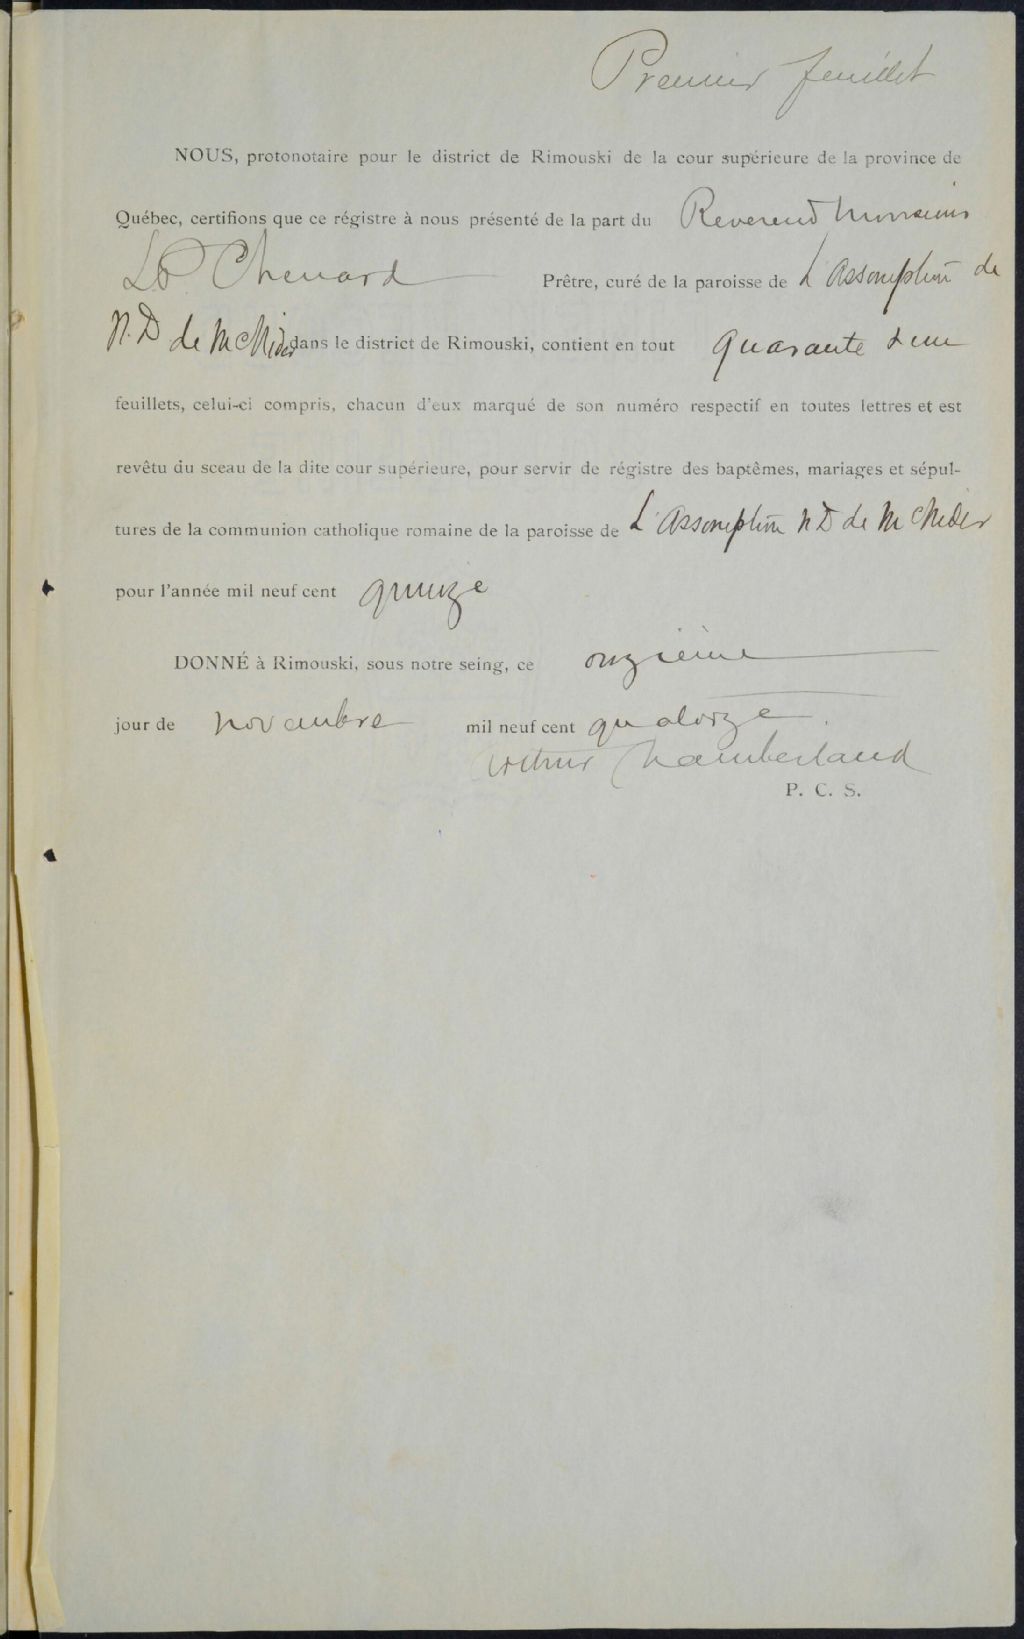 Premier feuillet
NOUS, protonotaire pour le district de Rimouski de la cour supérieure de la province de
Québec, certifions que ce régistre à nous présenté de la part du Reverend Monsieur
Chenard Prêtre, curé de la paroisse de L'Assomption de
N. D de McNider dans le district de Rimouski, contient en tout quarante & un
feuillets, celui-ci compris, chacun d'eux marqué de son numéro respectif en toutes lettres et est
revêtu du sceau de la dite cour supérieure, pour servir de régistre des baptêmes, mariages et sépul-
tures de la communion catholique romaine de la paroisse de L'Assomption N D de McNider
pour l'année mil neuf cent quinze
DONNÉ à Rimouski, sous notre seing, ce onzième
jour de novembre mil neuf cent quatorze
Arthur Chamberland
P. C. S.